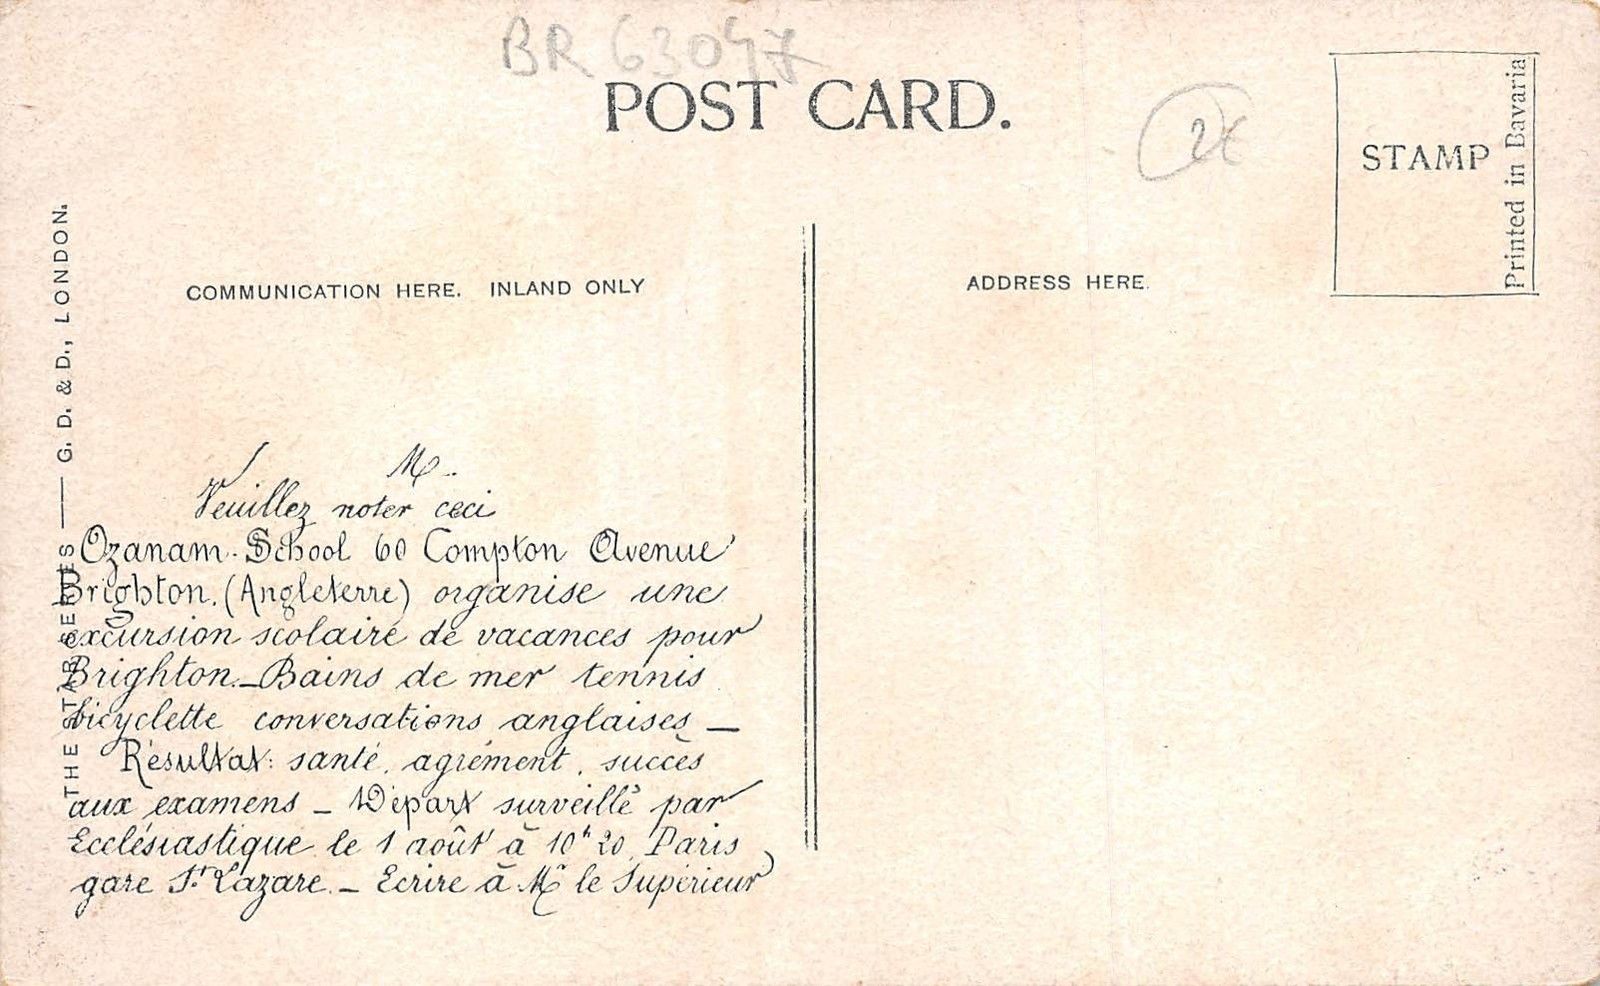 BR 63047
POST CARD.
2€
STAMP
Printed in Bavaria
THE STAR SERIES — G. D. & D., LONDON.
COMMUNICATION HERE. INLAND ONLY
ADDRESS HERE.
M.
Veuillez noter ceci
Ozanam-School 60 Compton Avenue
Brighton. (Angleterre) organise une
excursion scolaire de vacances pour
Brighton. — Bains de mer tennis
bicyclette conversations anglaises —
Résultat: santé, agrément, succès
aux examens — Départ surveillé par
Ecclésiastique le 1 août à 10h 20, Paris
gare St. Lazare. — Ecrire à Mr le Supérieur